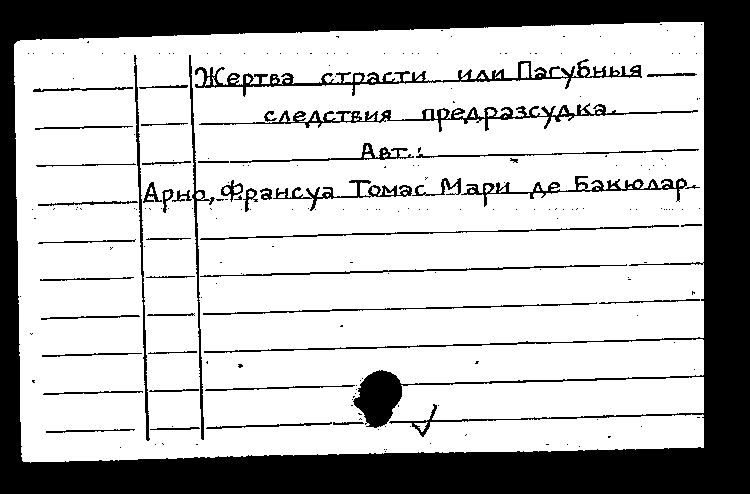 Жертва страсти или Пагубныя
следствия предразсудка.
Авт.:
Арно, Франсуа Томас Мари де Бакюлар.